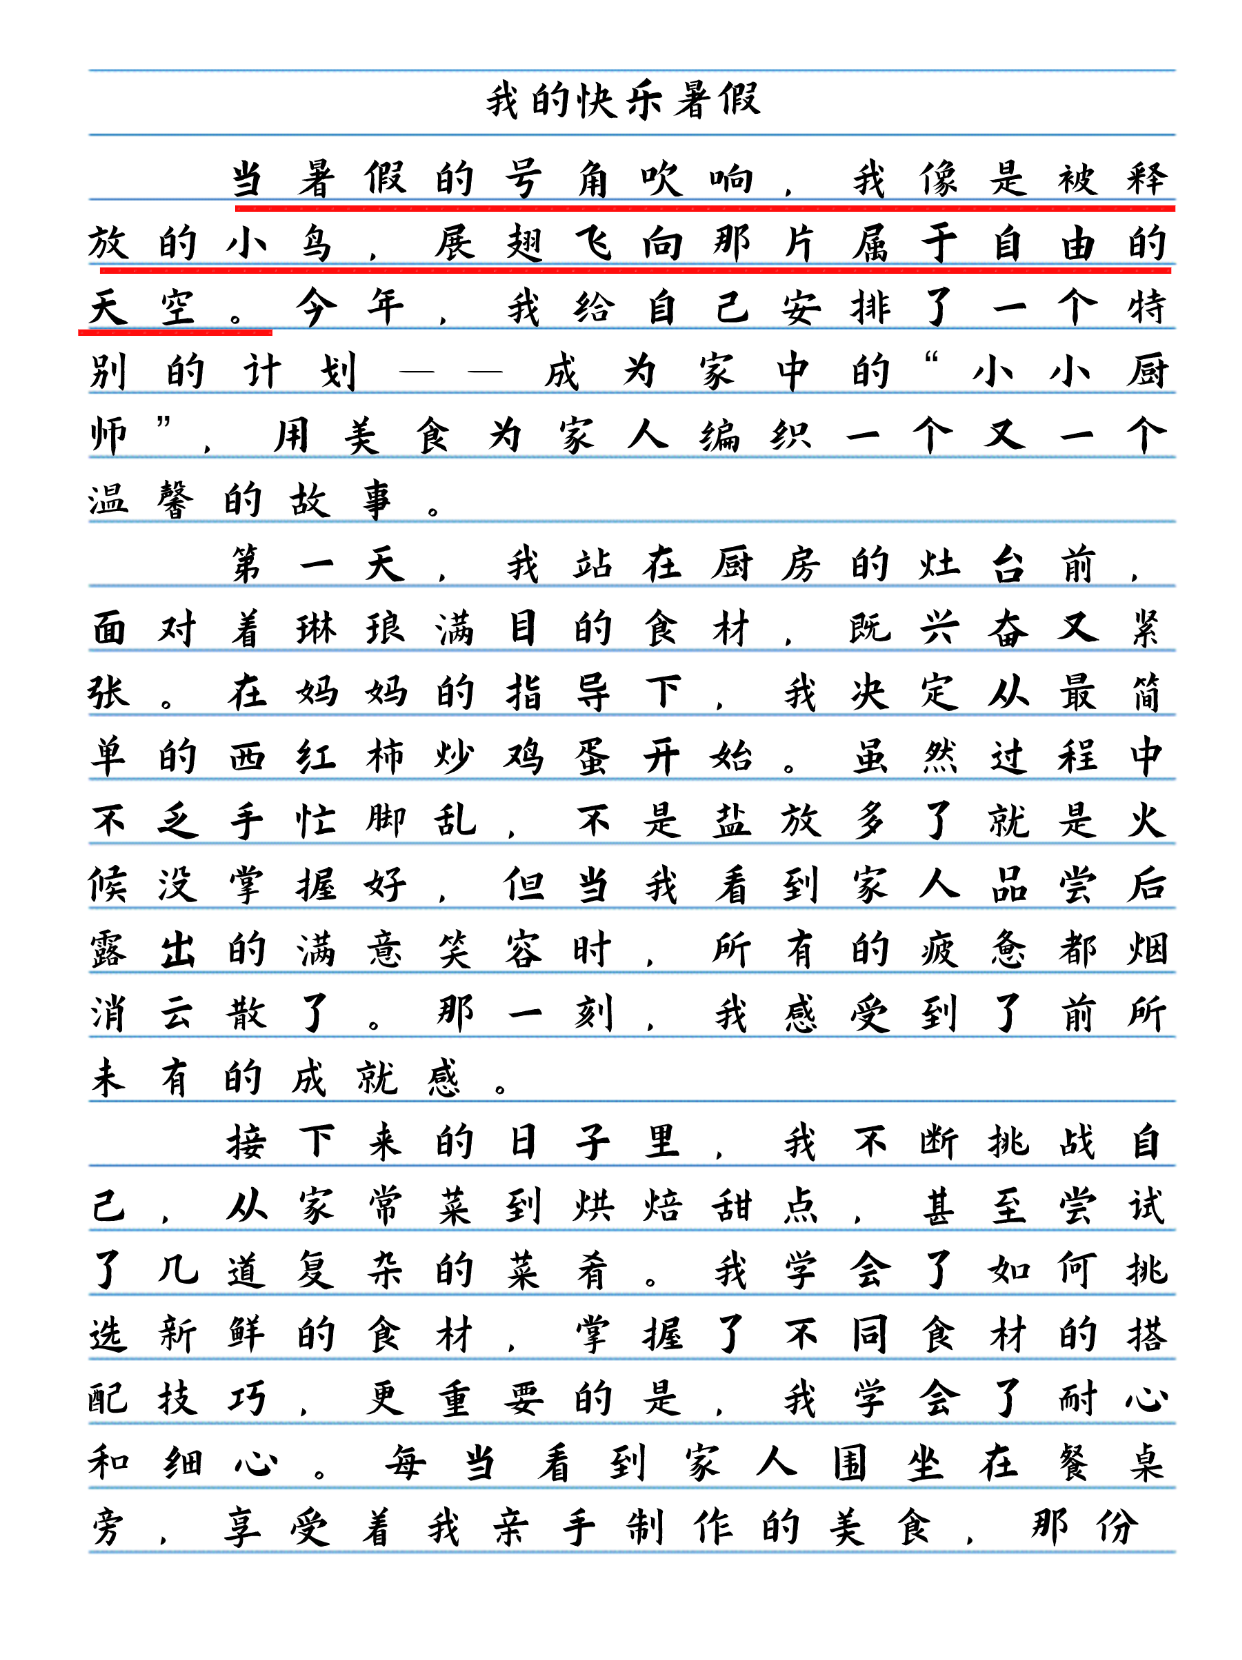 我的快乐暑假
当暑假的号角吹响，我像是被释
放的小鸟，展翅飞向那片属于自由的
天空。今年，我给自己安排了一个特
别的计划——成为家中的“小小厨
师”，用美食为家人编织一个又一个
温馨的故事。
第一天，我站在厨房的灶台前，
面对着琳琅满目的食材，既兴奋又紧
张。在妈妈的指导下，我决定从最简
单的西红柿炒鸡蛋开始。虽然过程中
不乏手忙脚乱，不是盐放多了就是火
候没掌握好，但当我看到家人品尝后
露出的满意笑容时，所有的疲惫都烟
消云散了。那一刻，我感受到了前所
未有的成就感。
接下来的日子里，我不断挑战自
己，从家常菜到烘焙甜点，甚至尝试
了几道复杂的菜肴。我学会了如何挑
选新鲜的食材，掌握了不同食材的搭
配技巧，更重要的是，我学会了耐心
和细心。每当看到家人围坐在餐桌
旁，享受着我亲手制作的美食，那份